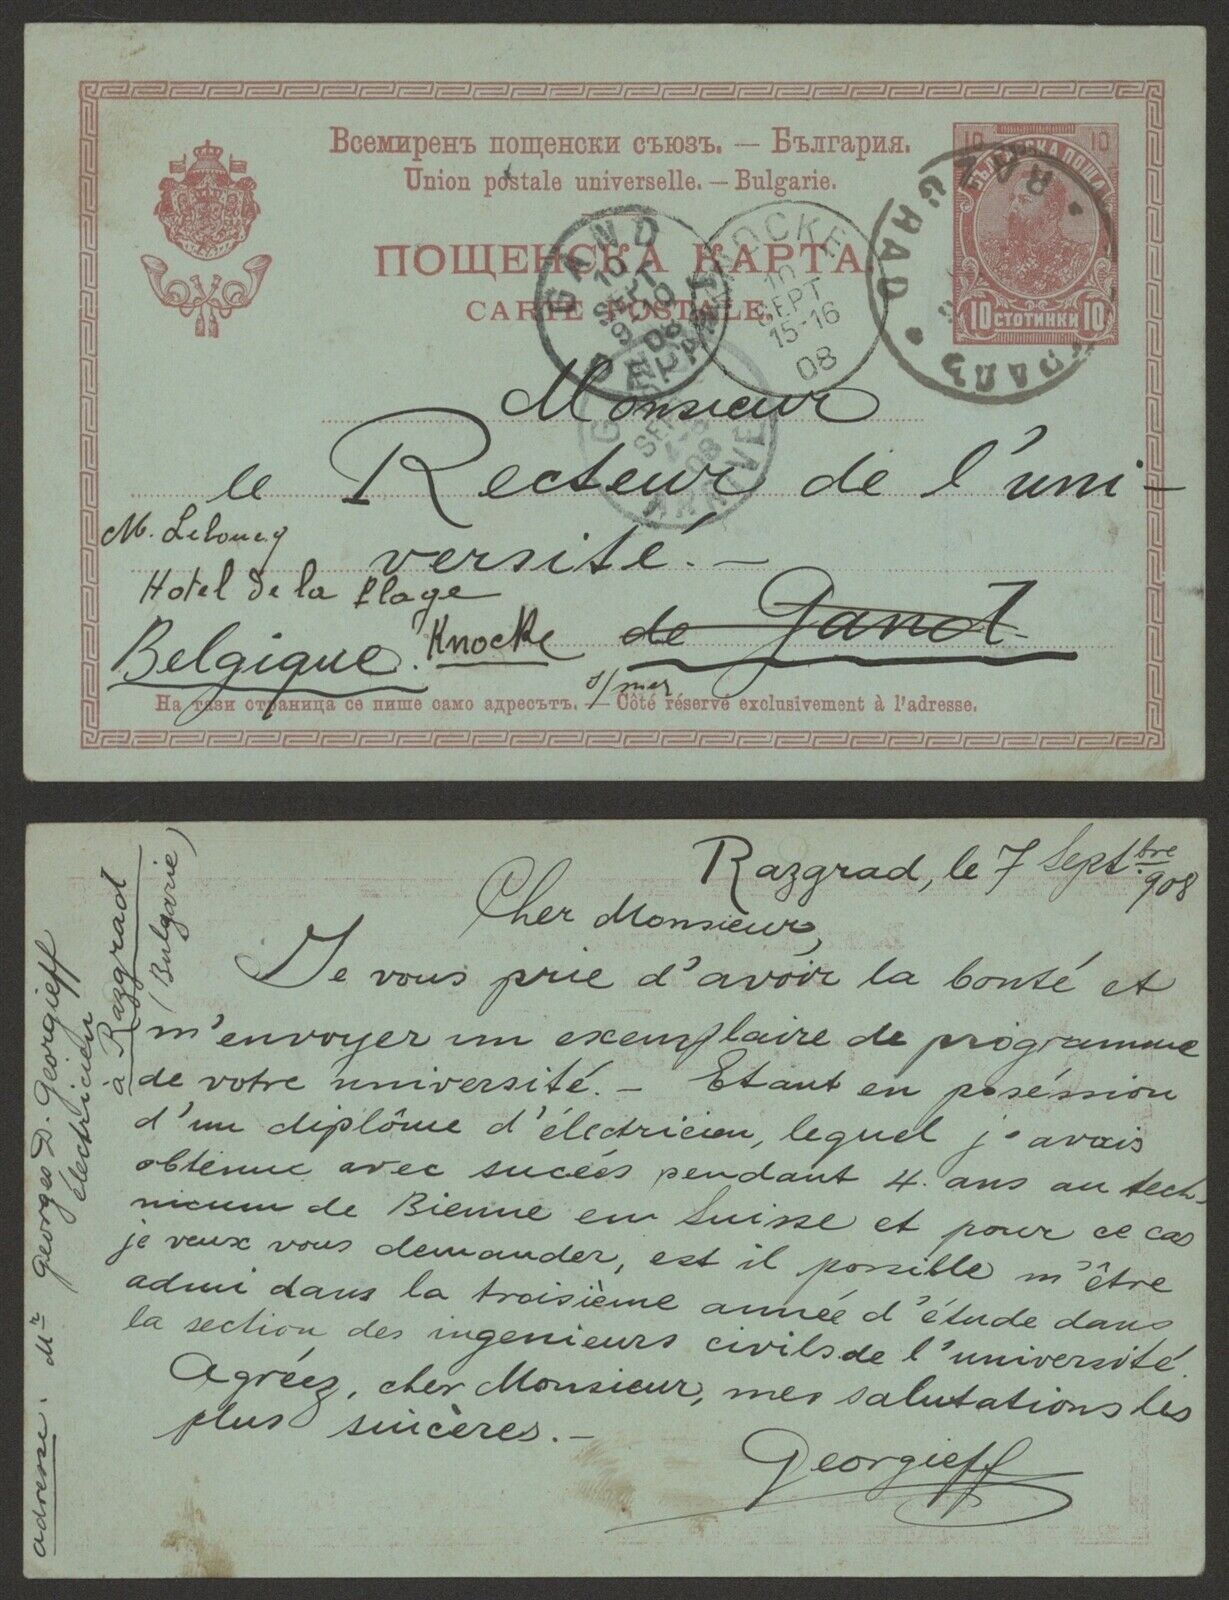 Всемиренъ пощенски съюзъ. — България.
Union postale universelle. — Bulgarie.
ПОЩЕНСКА КАРТА
CARTE POSTALE.
10 10
БЪЛГАРСКА ПОЩА
10 СТОТИНКИ 10
RAZGRAD
GAND
10
SEPT
9-10
08
DEPART
KNOCKE
10
SEPT
15-16
08
GAND
SEPT
08
ARRIVEE
Monsieur
le Recteur de l'uni-
versité.-
de Gand
M. Leboucq
Hotel de la Plage
Belgique. Knocke
s/mer
На тази страница се пише само адресътъ. — Côté réservé exclusivement à l'adresse.
Razgrad, le 7 Septbre 908
Cher Monsieur,
Je vous prie d'avoir la bonté et
m'envoyer un exemplaire de programme
de votre université. - Etant en poséssion
d'un diplôme d'électricien, lequel j'avais
obtenue avec sucéés pendant 4 ans au tech-
nicum de Bienne en Suisse et pour ce cas
je veux vous demander, est il possible m'être
admi dans la troisième année d'étude dans
la section des ingenieurs civils de l'université.
Agréez, cher Monsieur, mes salutations les
plus sincères. -
Georgieff
adresse: Mr Georges D. Georgieff
électricien
à Razgrad
(Bulgarie)